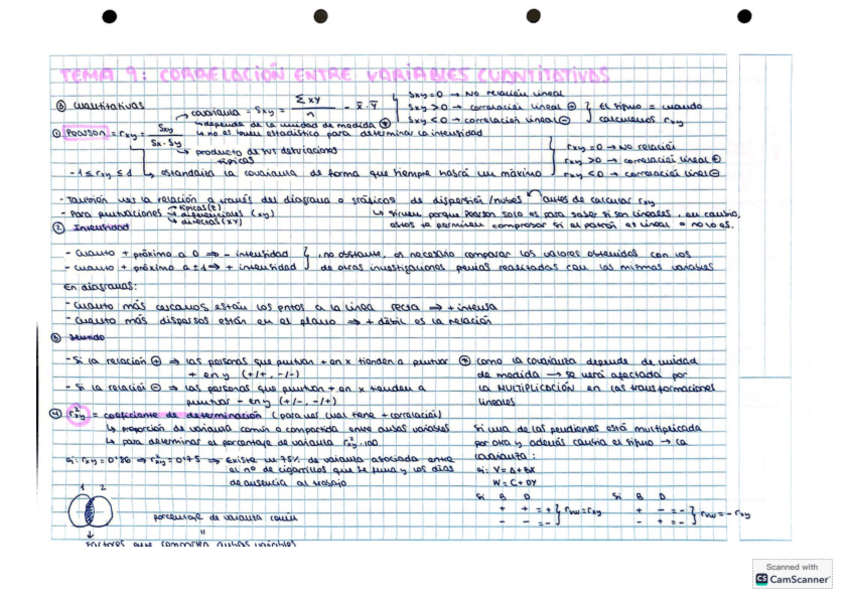 TEMA 9: CORRELACIÓN ENTRE VARIABLES CUANTITATIVAS
⓪ Cuantitativas → covarianza = Sxy = ΣXY / n - x̄ · ȳ
Sxy = 0 → No relación lineal
Sxy > 0 → correlación lineal ⊕
Sxy < 0 → correlación lineal ⊖
El signo = cuando calculemos rxy
depende de la unidad de medida
↳ no es buen estadístico para determinar la intensidad
① Pearson = rxy = Sxy / Sx · Sy
→ producto de sus desviaciones típicas
rxy = 0 → No relación
rxy > 0 → correlación lineal ⊕
rxy < 0 → correlación lineal ⊖
-1 ≤ rxy ≤ 1 ↳ estandariza la covarianza de forma que siempre habrá un máximo
- También ver la relación a través del diagrama o gráficos de dispersión/nubes antes de calcular rxy
- Para puntuaciones → típicas (z) → diferenciales (xy) → directas (XY)
↳ sirven porque Pearson solo es para saber si son lineales, en cambio,
estos te permiten comprobar si el patrón es lineal o no lo es.
② Intensidad
- Cuanto + próximo a 0 ⇒ - intensidad
- Cuanto + próximo a ±1 ⇒ + intensidad
, no obstante, es necesario comparar los valores obtenidos con los
de otras investigaciones previas realizadas con las mismas variables
En diagramas:
- Cuanto más cercanos están los pntos a la línea recta ⇒ + intensa
- Cuanto más dispersos están en el plano ⇒ + débil es la relación
③ Sentido
- Si la relación ⊕ ⇒ las personas que puntúan + en x tienden a puntuar
+ en y (+/+, -/-)
- Si la relació ⊖ ⇒ las personas que puntúan + en x tienden a
puntuar - en y (+/-, -/+)
como la covarianza depende de unidad
de medida → se verá afectada por
la MULTIPLICACIÓN en las transformaciones
lineales
④ r²xy = coeficiente de determinación (para ver cual tiene + correlación)
↳ proporción de varianza común o compartida entre ambas variables
↳ para determinar el porcentaje de varianza r²xy · 100
ej: rxy = 0'86 ⇒ r²xy = 0'75 ⇒ Existe un 75% de varianza asociada entre
el nº de cigarrillos que se fuma y los días
de ausencia al trabajo
Si una de las pendientes está multiplicada
por otra y además cambia el signo → la
covarianza:
ej: V = A + BX
W = C + DY
Si B D
+ + = +
- - =
} rvw = rxy
Si B D
+ - = -
- + = -
} rvw = - rxy
1 2
porcentaje de varianza común
"
factores que comparten ambas variables
Scanned with
CS CamScanner